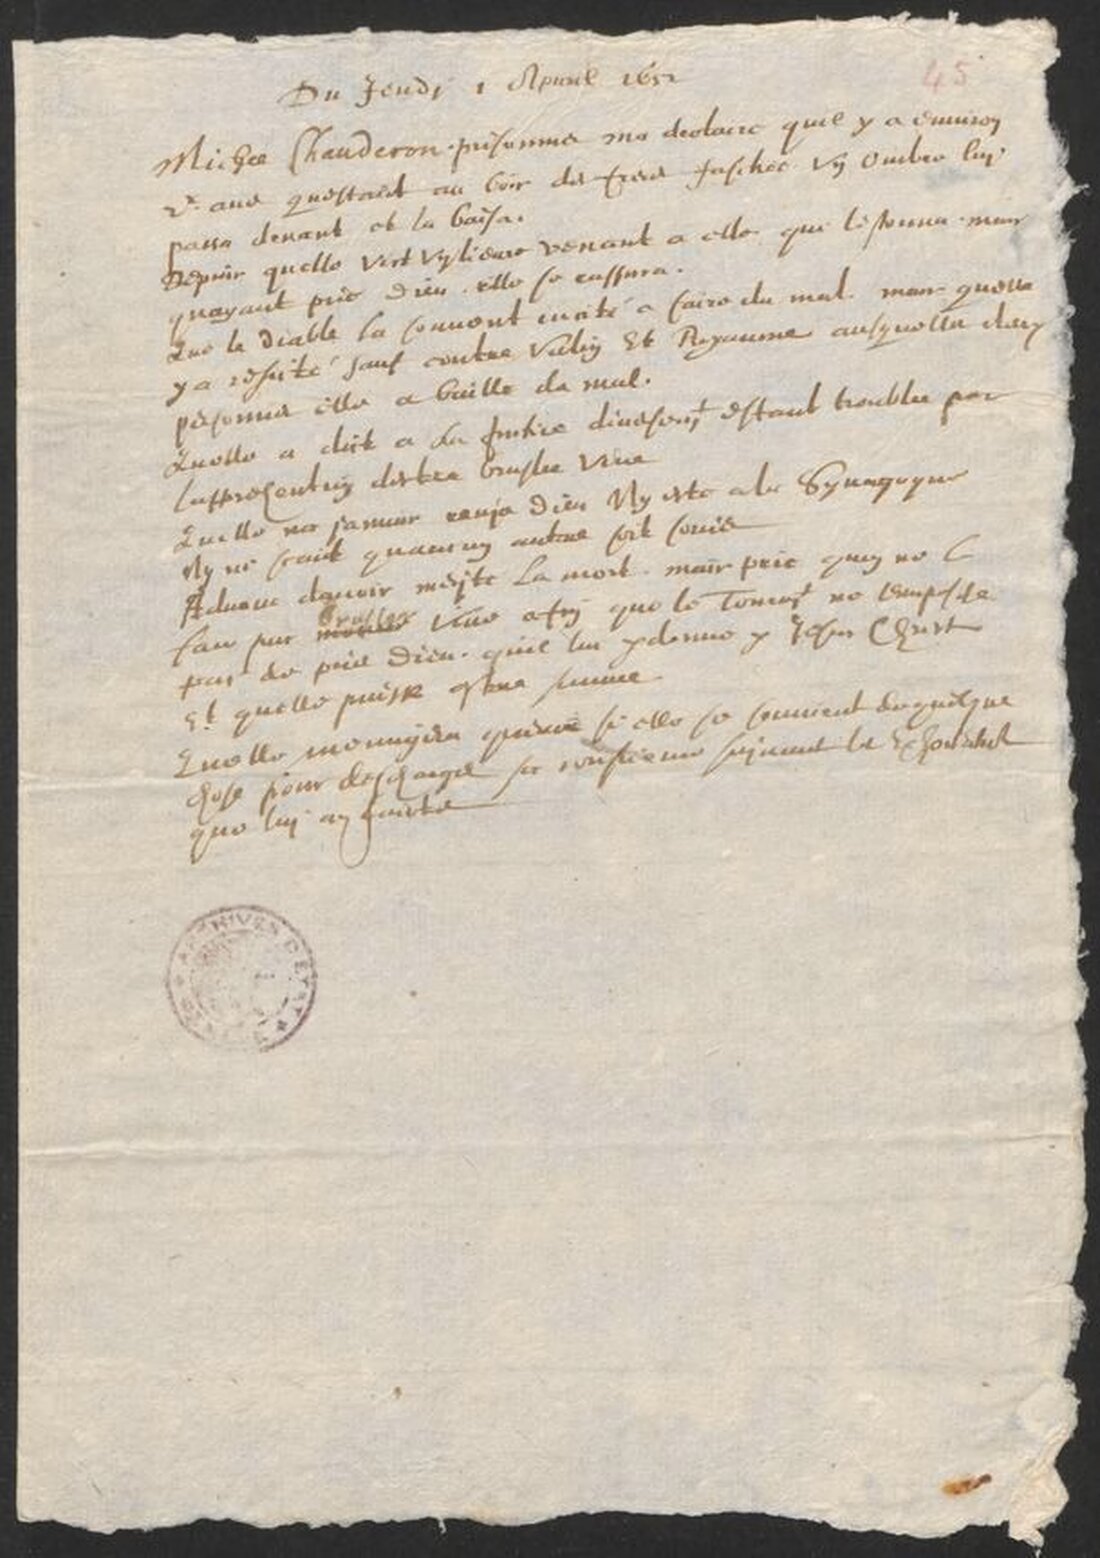 Du Jeudj 1 Apuril 1652
45
Michee Chauderon prisonniere ma declaire quil y a enuiron
ans questant au boir des freres faschee vn Ombre luy
passa deuant et la baisa.
Depuis quelle vist vn lieure venant a elle qui lestonna mais
quayant prie Dieu elle se rassura.
Que le diable la souuent incite a faire du mal mais quelle
y a resiste sauf contre Vulin Et Royaume ausquelles deux
personnes elle a baille du mal.
Quelle a dict a la Justice diuersemt estant troublee par
lapprehention destre bruslee viue
Quelle na jamais renje Dieu Ny este a la Synagogue
Ny ne scait quaucun autre soit sorcie
Aduoue dauoir merite la mort mais prie quon ne l
face pas bruslee viue afin que le Tourmt ne lempesche
pas de prie Dieu quil luj pdonne p Jesus Christ
Et quelle puisse estre sauuee
Quelle si elle se souuient de quelque
chose pour descharge sa conscience suiuant la Exhortat
que luj ay faicte
ARCHIVES D'ETAT